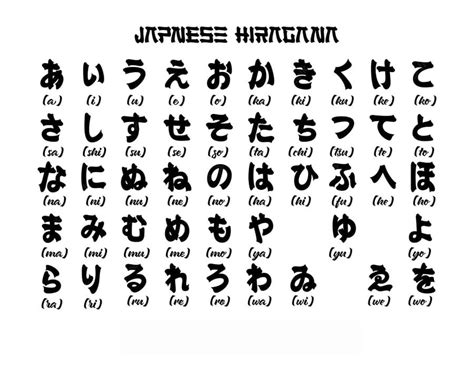 JAPNESE HIRAGANA
あ い う え お か き く け こ
(a) (i) (u) (e) (o) (ka) (ki) (ku) (ke) (ko)
さ し す せ そ た ち つ て と
(sa) (shi) (su) (se) (so) (ta) (chi) (tsu) (te) (to)
な に ぬ ね の は ひ ふ へ ほ
(na) (ni) (nu) (ne) (no) (ha) (hi) (fu) (he) (ho)
ま み む め も や ゆ よ
(ma) (mi) (mu) (me) (mo) (ya) (yu) (yo)
ら り る れ ろ わ ゐ ゑ を
(ra) (ri) (ru) (re) (ro) (wa) (wi) (we) (wo)